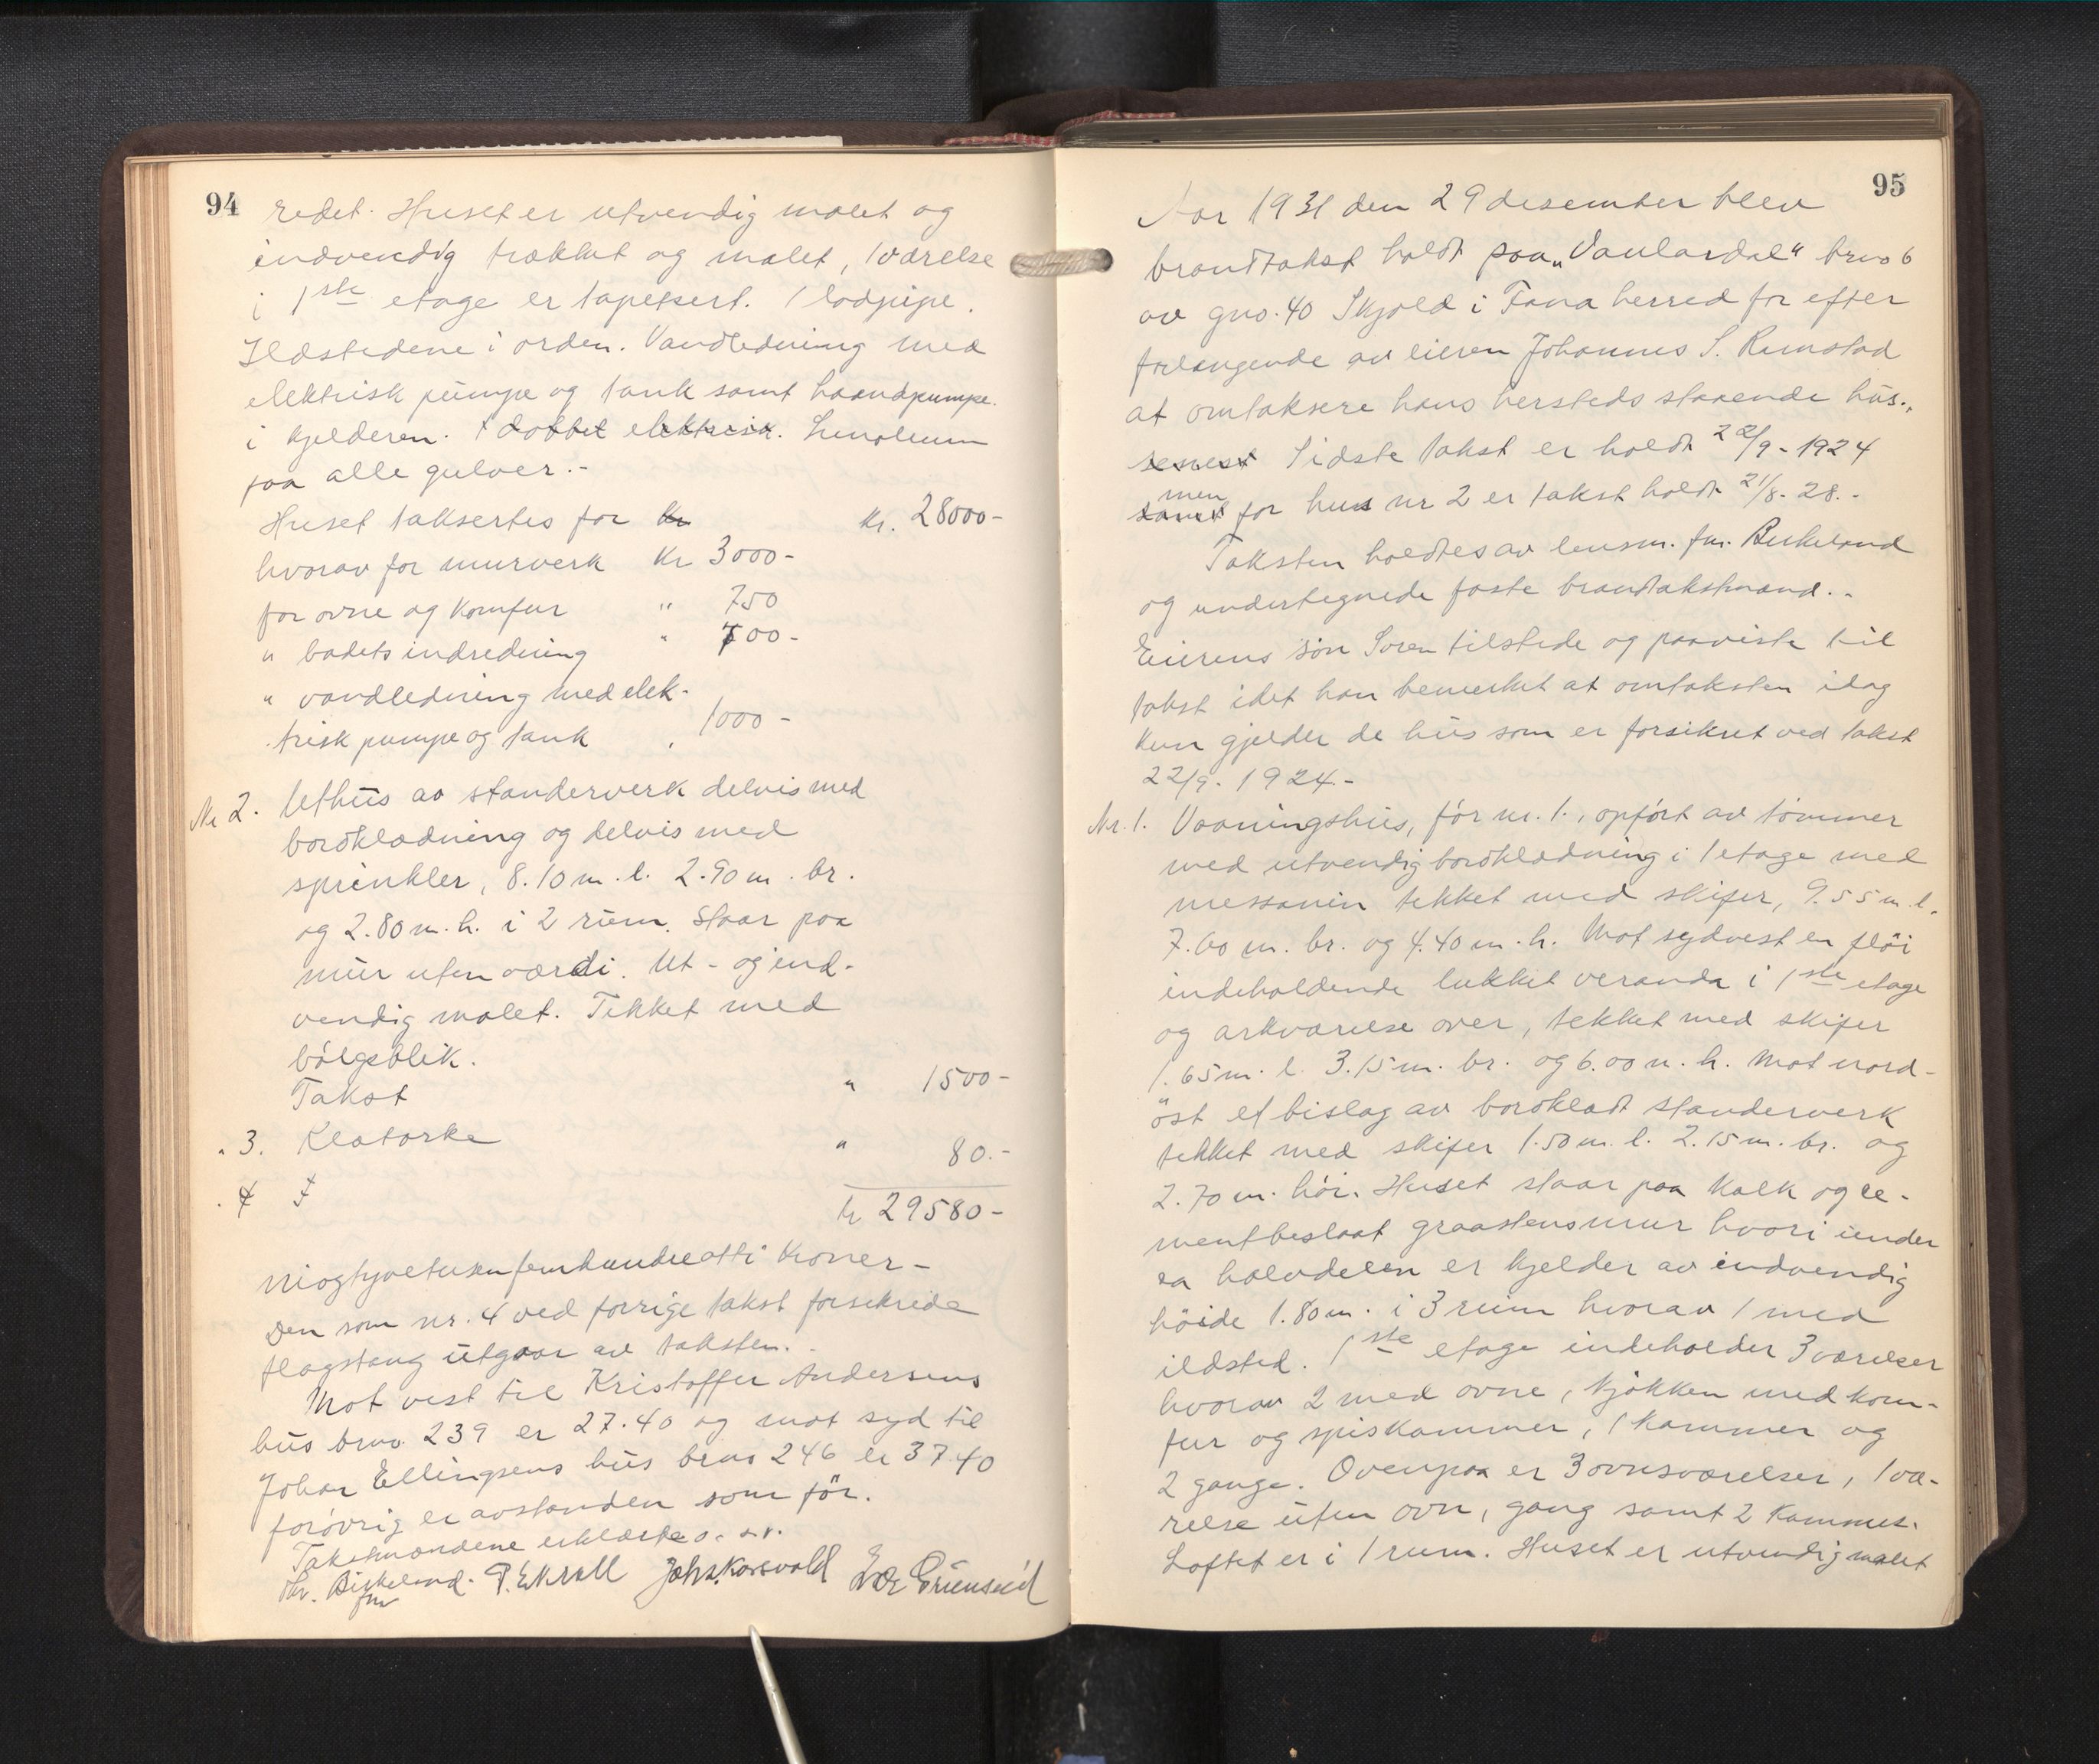 94
redet. Huset er utvendig malet og
indvendig trækket og malet, 1 værelse
i 1ste etage er tapetsert. 1 lodpipe.
Ildstedene i orden. Vandledning med
elektrisk pumpe og tank samt haandpumpe.
i kjelderen. 1 dobbet elektrisk. Linoleum
paa alle gulver.-
Huset taksertes for kr kr. 28000-
hvorav for murverk kr 3000-
for ovne og komfur " 750
" badets indredning " 700-
" vandledning med elek-
trisk pumpe og tank " 1000-
Nr 2. Uthus av standerverk delvis med
bordklædning og delvis med
sprinkler, 8.10 m. l. 2.90 m. br.
og 2.80 m. h. i 2 rum. Staar paa
mur uten værdi. Ut- og ind-
vendig malet. Tekket med
bølgeblik.
Takst " 1500-
" 3. Kloatørke " 80.-
" 4 F
kr 29580-
Niogtyvetusenfemhundreotti kroner-
Den som nr. 4 ved forrige takst forsikrede
flagstang utgaar av taksten.-
Mot vest til Kristoffer Andersens
hus brno. 239 er 27.40 og mot syd til
Johan Ellingsens hus brno 246 er 37.40
forøvrig er avstanden som før.
Takstmændene erklærte o. s. v.
Birkeland. fm P. Ekrell Johs. Korsvold
95
Aar 1931 den 29 desember blev
brandtakst holdt paa "Vaulardal" brno 6
av gno. 40 Skjold i Fana herred for efter
forlangende av eieren Johannes S. Rimstad
at omtaksere hans hersteds staaende hus.,
senest Sidste takst er holdt 22/9-1924
men
samt for hus nr 2 er takst holdt 21/8-28.-
Taksten holdtes av lensm. fm. Birkeland
og undertegnede faste brandtakstmænd.-
Eierens søn Søren tilstede og paaviste til
takst idet han bemerket at omtaksten idag
kun gjelder de hus som er forsikret ved takst
22/9-1924-
Nr. 1. Vaaningshus, før nr. 1., opført av tømmer
med utvendig bordklædning i 1 etage med
messanin tekket med skifer, 9.55 m. l.
7.60 m. br. og 4.40 m. h. Mot sydvest en fløi
indeholdende lukket veranda i 1ste etage
og arkværelse over, tekket med skifer
1.65 m. l. 3.15 m. br. og 6.00 m. h. Mot nord-
øst et bislag av bordklædt standerverk
tekket med skifer 1.50 m. l. 2.15 m. br. og
2.70 m. høi. Huset staar paa kalk og ce-
mentbeslaat graastensmur hvori under
ca halvdelen er kjelder av indvendig
høide 1.80 m. i 3 rum hvorav 1 med
ildsted. 1ste etage indeholder 3 værelser
hvorav 2 med ovne, kjøkken med kom-
fur og spiskammer, 1 kammer og
2 gange. Ovenpaa er 3 ovnsværelser, 1 væ-
relse uten ovn, gang samt 2 kammes.
Loftet er i 1 rum. Huset er utvendig malet